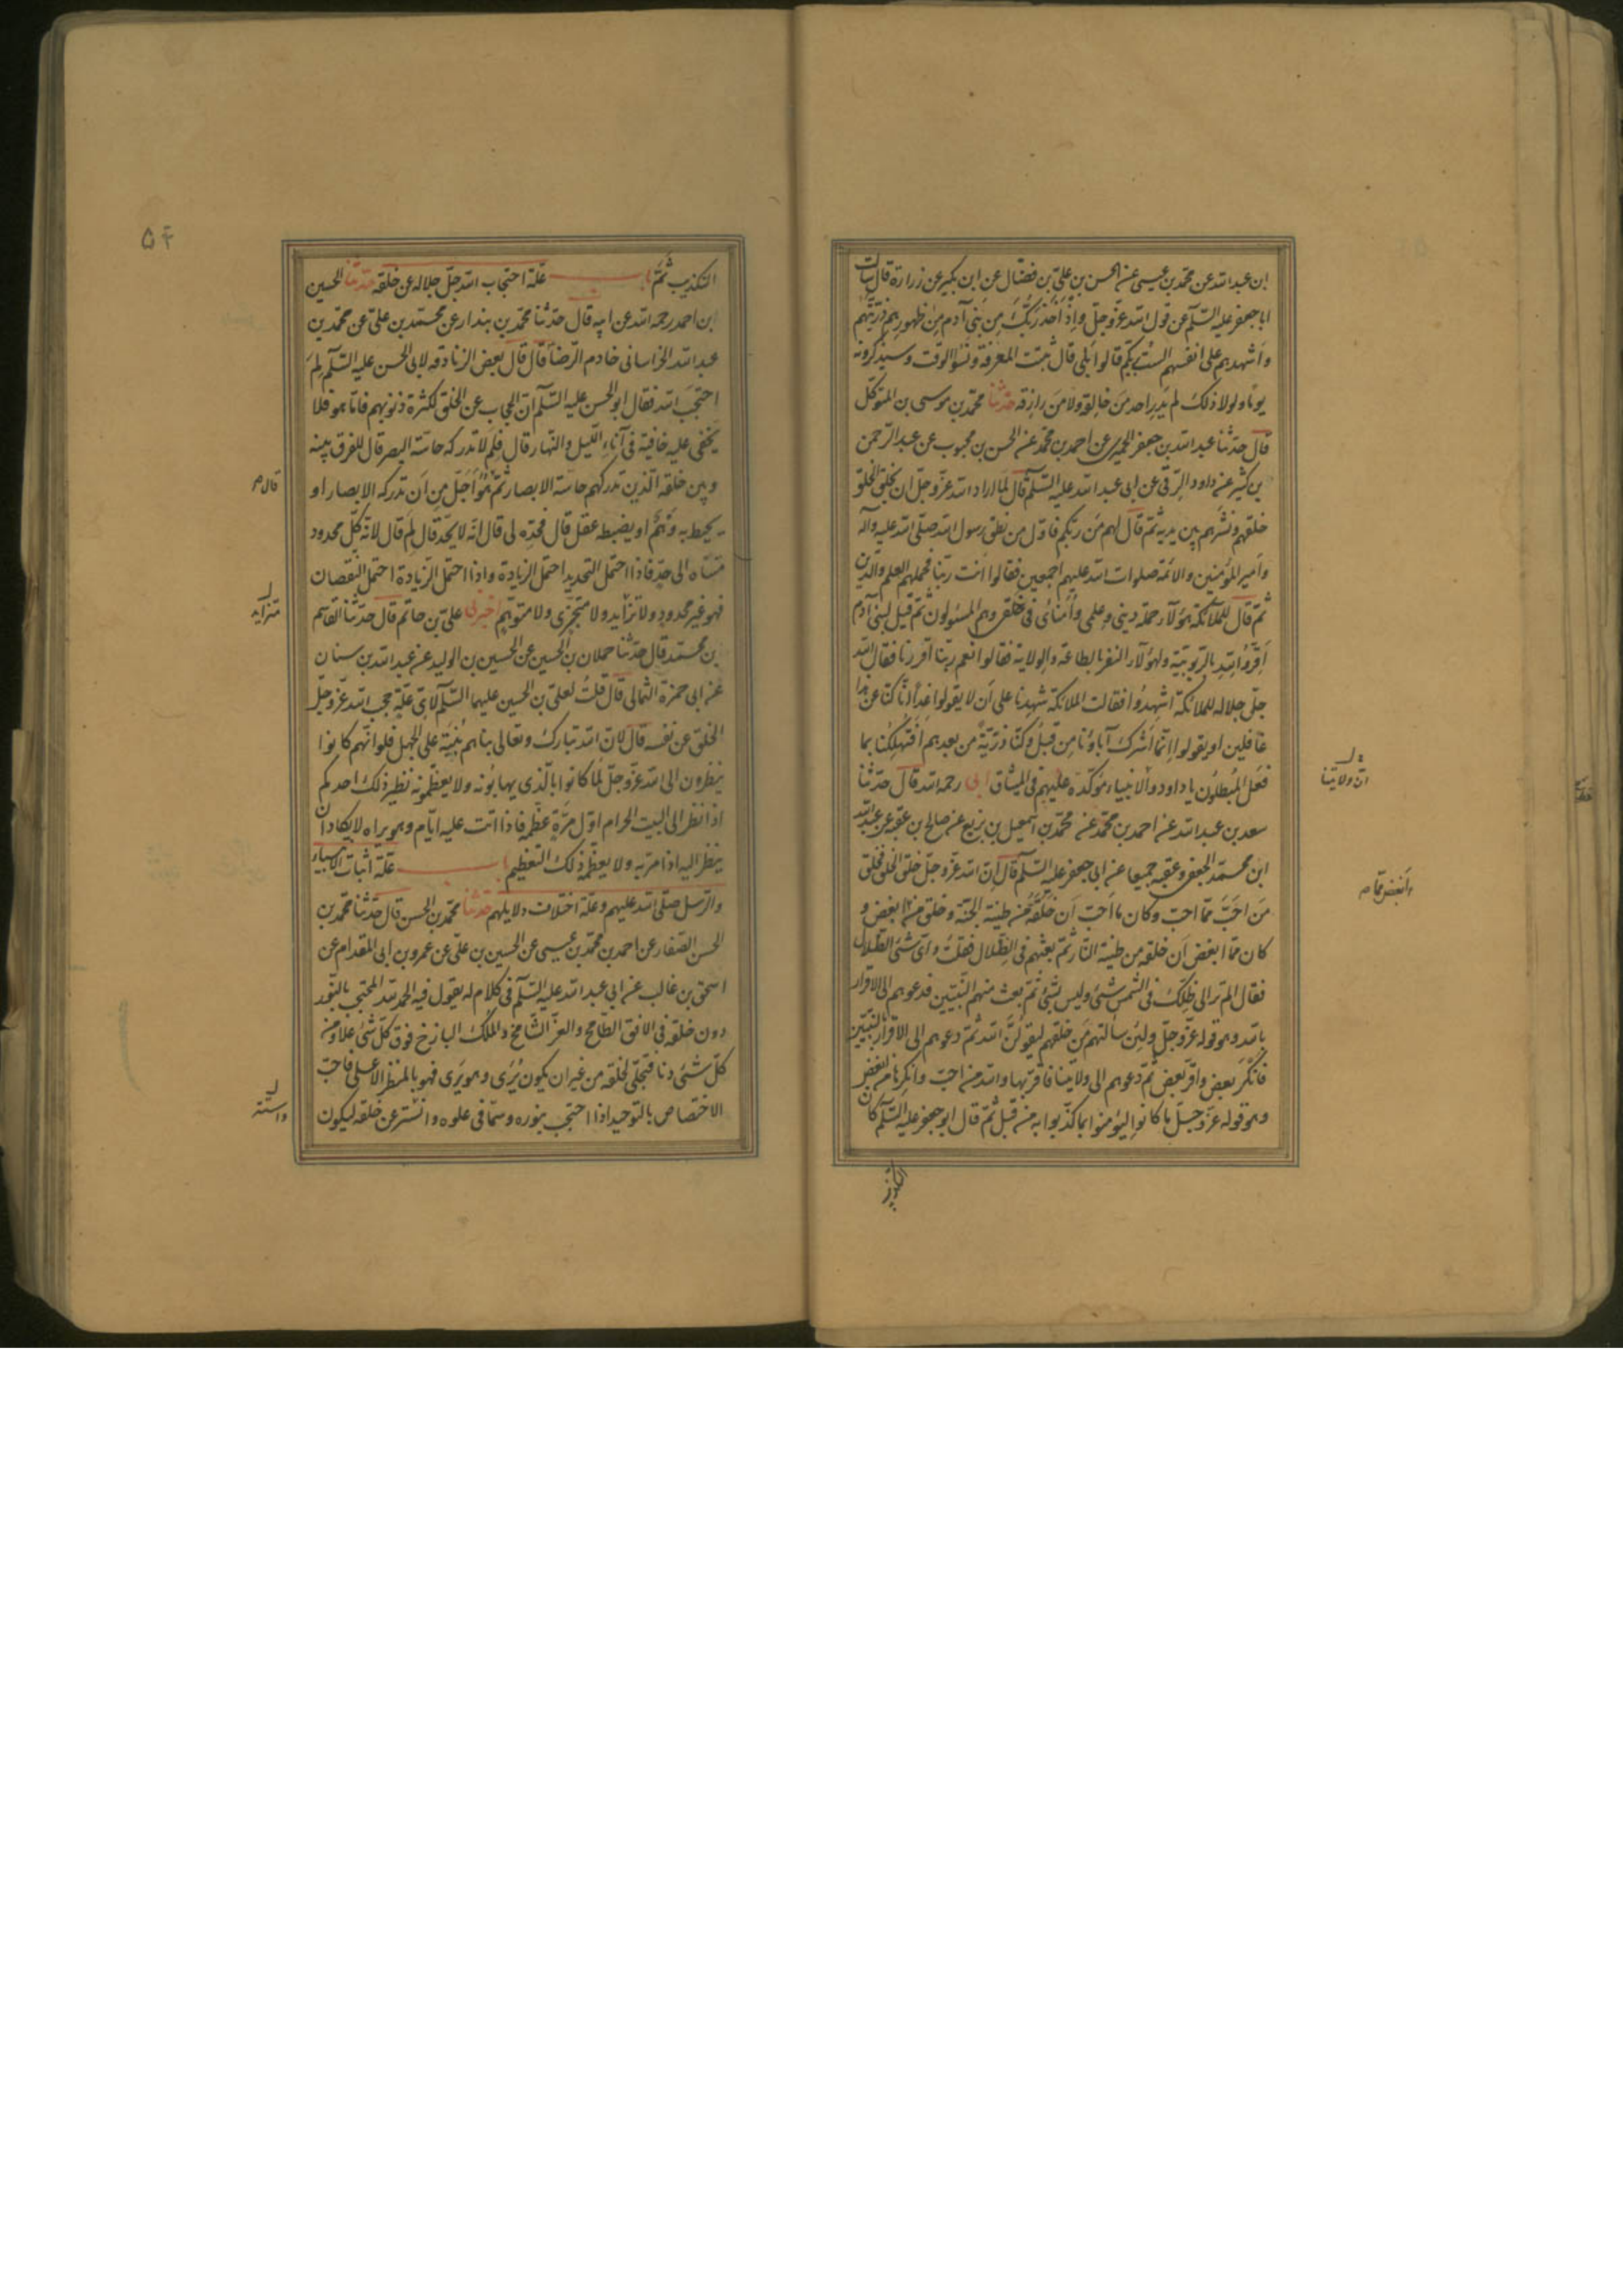 ابن عبد الله عن محمد بن عيسى عن الحسن بن علي بن فضال عن ابن بكير عن زرارة قال سالت
ابا جعفر عليه السلام عن قول الله عز وجل واذ اخذ ربك من بني آدم من ظهورهم ذريتهم
واشهدهم على انفسهم الست بربكم قالوا بلى قال ثبتت المعرفة ونسوا الوقت وسيذكرونه
يوما ولولا ذلك لم يدر احد من خالقه ولا من رازقه حدثنا محمد بن موسى بن المتوكل
قال حدثنا عبد الله بن جعفر الحميري عن احمد بن محمد عن الحسن بن محبوب عن عبد الرحمن
بن كثير عن داود الرقي عن ابي عبد الله عليه السلام قال لما اراد الله عز وجل ان يخلق الخلق
خلقهم ونشرهم بين يديه ثم قال لهم من ربكم فاول من نطق رسول الله صلى الله عليه وآله
وامير المؤمنين والائمة صلوات الله عليهم اجمعين فقالوا انت ربنا فحملهم العلم والدين
ثم قال للملائكة هؤلاء حملة ديني وعلمي وامنائي في خلقي وهم المسئولون ثم قيل لبني آدم
اقروا لله بالربوبية ولهؤلاء النفر بالطاعة والولاية فقالوا نعم ربنا اقررنا فقال الله
جل جلاله للملائكة اشهدوا فقالت الملائكة شهدنا على ان لا يقولوا غدا انا كنا عن هذا
غافلين او يقولوا انما اشرك آباؤنا من قبل وكنا ذرية من بعدهم افتهلكنا بما
فعل المبطلون يا داود والانبياء مؤكدة عليهم في الميثاق ابي رحمه الله قال حدثنا
سعد بن عبد الله عن احمد بن محمد عن محمد بن اسمعيل بن بزيع عن صالح بن عقبة عن عبد الله
ابن محمد الجعفي وعقبة جميعا عن ابي جعفر عليه السلام قال ان الله عز وجل خلق الخلق فخلق
من احب مما احب وكان ما احب ان خلقه من طينة الجنة وخلق من ابغض و
كان مما ابغض ان خلقه من طينة النار ثم بعثهم في الظلال فقلت واي شئ الظلال
فقال الم تر الى ظلك في الشمس شئ وليس بشئ ثم بعث منهم النبيين فدعوهم الى الاقرار
بالله وهو قوله عز وجل ولئن سألتهم من خلقهم ليقولن الله ثم دعوهم الى الاقرار بالنبيين
فانكر بعض واقر بعض ثم دعوهم الى ولايتنا فاقر بها والله من احب وانكرها من ابغض
وهو قوله عز وجل ما كانوا ليؤمنوا بما كذبوا به من قبل ثم قال ابو جعفر عليه السلام كان
التكذيب
ان ولايتنا
۵۴
التكذيب ثم باب علة احتجاب الله جل جلاله عن خلقه حدثنا الحسين
ابن احمد رحمه الله عن ابيه قال حدثنا محمد بن بندار عن محمد بن علي عن محمد بن
عبد الله الخراساني خادم الرضا قال قال بعض الزنادقة لابي الحسن عليه السلام لم
احتجب الله فقال ابو الحسن عليه السلام ان الحجاب عن الخلق لكثرة ذنوبهم فاما هو فلا
يخفى عليه خافية في آناء الليل والنهار قال فلم لا تدركه حاسة البصر قال للفرق بينه
وبين خلقه الذين تدركهم حاسة الابصار ثم هو اجل من ان تدركه الابصار او
يحيط به وهم او يضبطه عقل قال فحده لي قال انه لا يحد قال لم قال لانه كل محدود
متناه الى حد فاذا احتمل التحديد احتمل الزيادة واذا احتمل الزيادة احتمل النقصان
فهو غير محدود ولا تزايد ولا متجزي ولا متوهم اخبرني علي بن حاتم قال حدثنا القاسم
بن محمد قال حدثنا حملان بن الحسين عن الحسين بن الوليد عن عبد الله بن سنان
عن ابي حمزة الثمالي قال قلت لعلي بن الحسين عليهما السلام لاي علة حجب الله عز وجل
الخلق عن نفسه قال لان الله تبارك وتعالى بناهم بنية على الجهل فلو انهم كانوا
ينظرون الى الله عز وجل لما كانوا بالذي يهابونه ولا يعظمونه نظير ذلك احدكم
اذا نظر الى البيت الحرام اول مرة عظمه فاذا اتت عليه ايام وهو يراه لا يكاد ان
ينظر اليه اذا مر به ولا يعظمه ذلك التعظيم باب علة اثبات الانبياء
والرسل صلى الله عليهم وعلة اختلاف دلايلهم حدثنا محمد بن الحسن قال حدثنا محمد بن
الحسن الصفار عن احمد بن محمد بن عيسى عن الحسين بن علي عن عمرو بن ابي المقدام عن
اسحق بن غالب عن ابي عبد الله عليه السلام في كلام له يقول فيه الحمد لله المحتجب بالنور
دون خلقه في الافق الطامح والعز الشامخ والملك الباذخ فوق كل شئ علا ومن
كل شئ دنا فتجلى لخلقه من غير ان يكون يرى وهو يرى فهو بالمنظر الاعلى فاحب
الاختصاص بالتوحيد اذا احتجب بنوره وسما في علوه واستتر عن خلقه ليكون
قال
متزايد